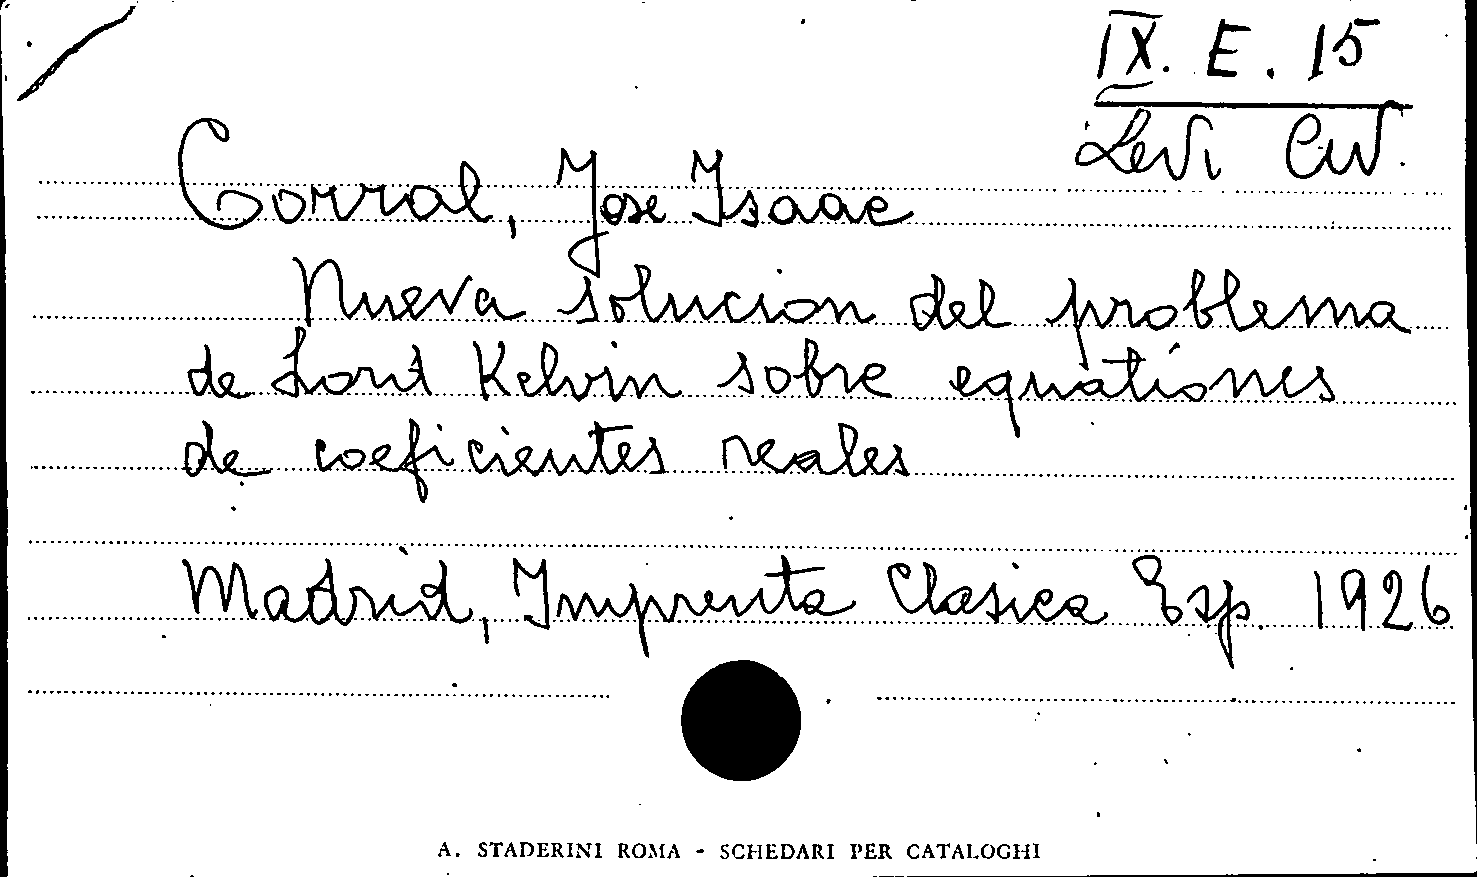 IX. E. 15
Levi Civ.
Corral, Jose Isaac
Nueva solucion del problema
de Lord Kelvin sobre equationes
de coeficientes reales
Madrid, Imprenta Clasica Esp. 1926
A. STADERINI ROMA - SCHEDARI PER CATALOGHI